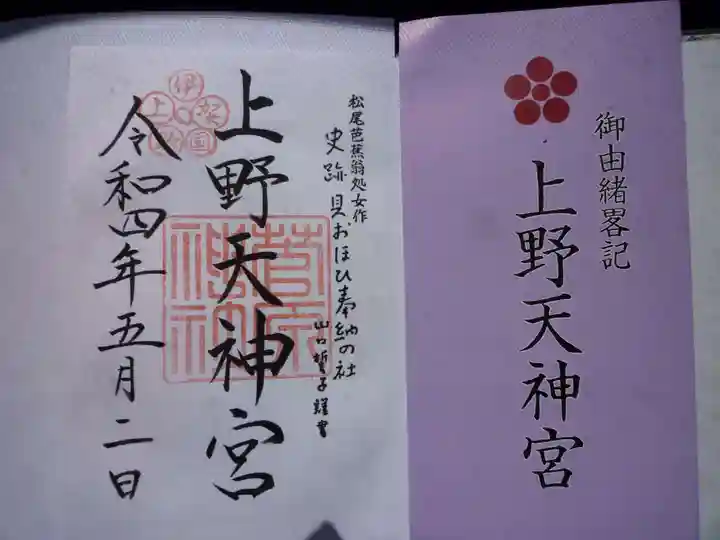 御由緒畧記
上野天神宮
松尾芭蕉翁処女作
史跡 貝おほひ奉納の社
山口誓子謹書
上野天神宮
伊賀国上野
菅原神社
令和四年五月二日